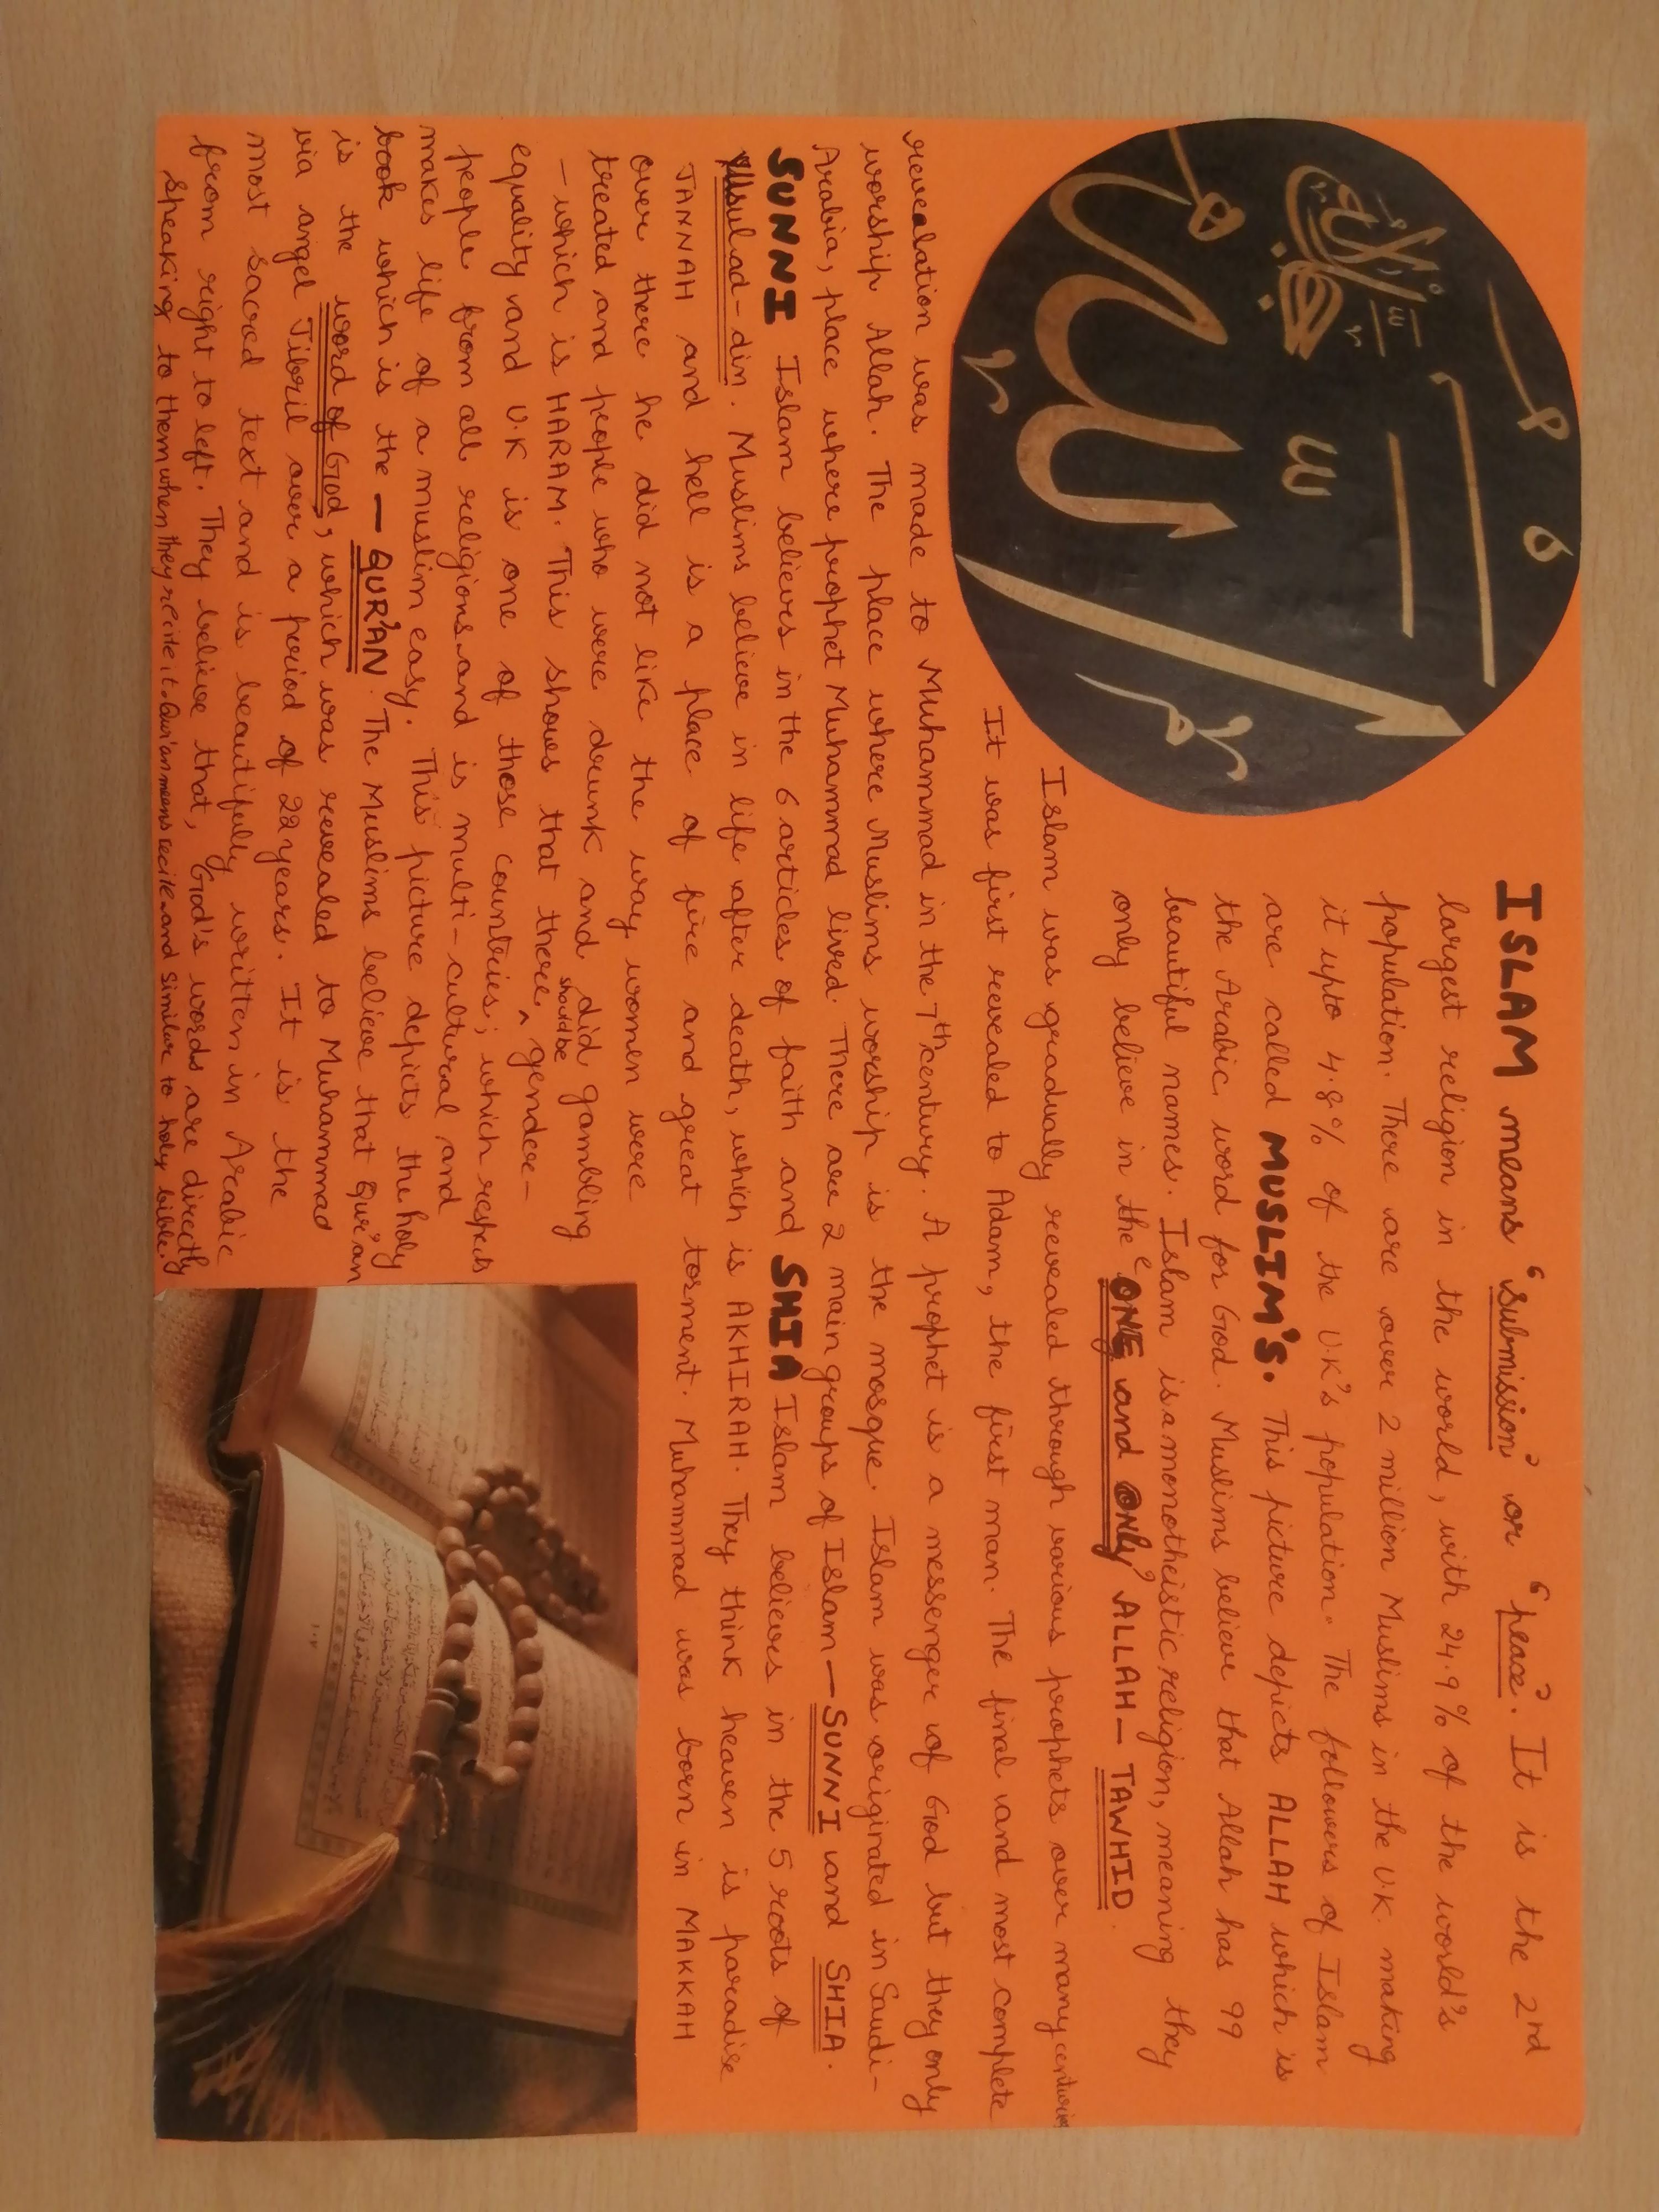 ISLAM means 'Submission' or 'peace'. It is the 2nd
largest religion in the world, with 24.9% of the world's
population. There are over 2 million Muslims in the U.K. making
it upto 4.8% of the U.K's population. The followers of Islam
are called MUSLIM'S. This picture depicts ALLAH which is
the Arabic word for God. Muslims believe that Allah has 99
beautiful names. Islam is a monotheistic religion, meaning they
only believe in the 'ONE and only' ALLAH - TAWHID.
Islam was gradually revealed through various prophets over many centuries
It was first revealed to Adam, the first man. The final and most complete
revealation was made to Muhammad in the 7th century. A prophet is a messenger of God but they only
worship Allah. The place where Muslims worship is the mosque. Islam was originated in Saudi-
Arabia, place where prophet Muhammad lived. There are 2 main groups of Islam - SUNNI and SHIA.
SUNNI Islam believes in the 6 articles of faith and SHIA Islam believes in the 5 roots of
Usulad-din. Muslims believe in life after death, which is AKHIRAH. They think heaven is paradise
JANNAH and hell is a place of fire and great torment. Muhammad was born in MAKKAH
over there he did not like the way women were
treated and people who were drunk and did gambling
- which is HARAM. This shows that there should be gender-
equality and U.K is one of those countries; which respects
people from all religions and is multi-cultural and
makes life of a muslim easy. This picture depicts the holy
book which is the - QUR'AN. The Muslims believe that Qur'an
is the word of God, which was revealed to Muhammad
via angel Jibril over a period of 22 years. It is the
most sacred text and is beautifully written in Arabic
from right to left. They believe that, God's words are directly
speaking to them when they recite it. Qur'an means recite and similar to holy bible.
الله